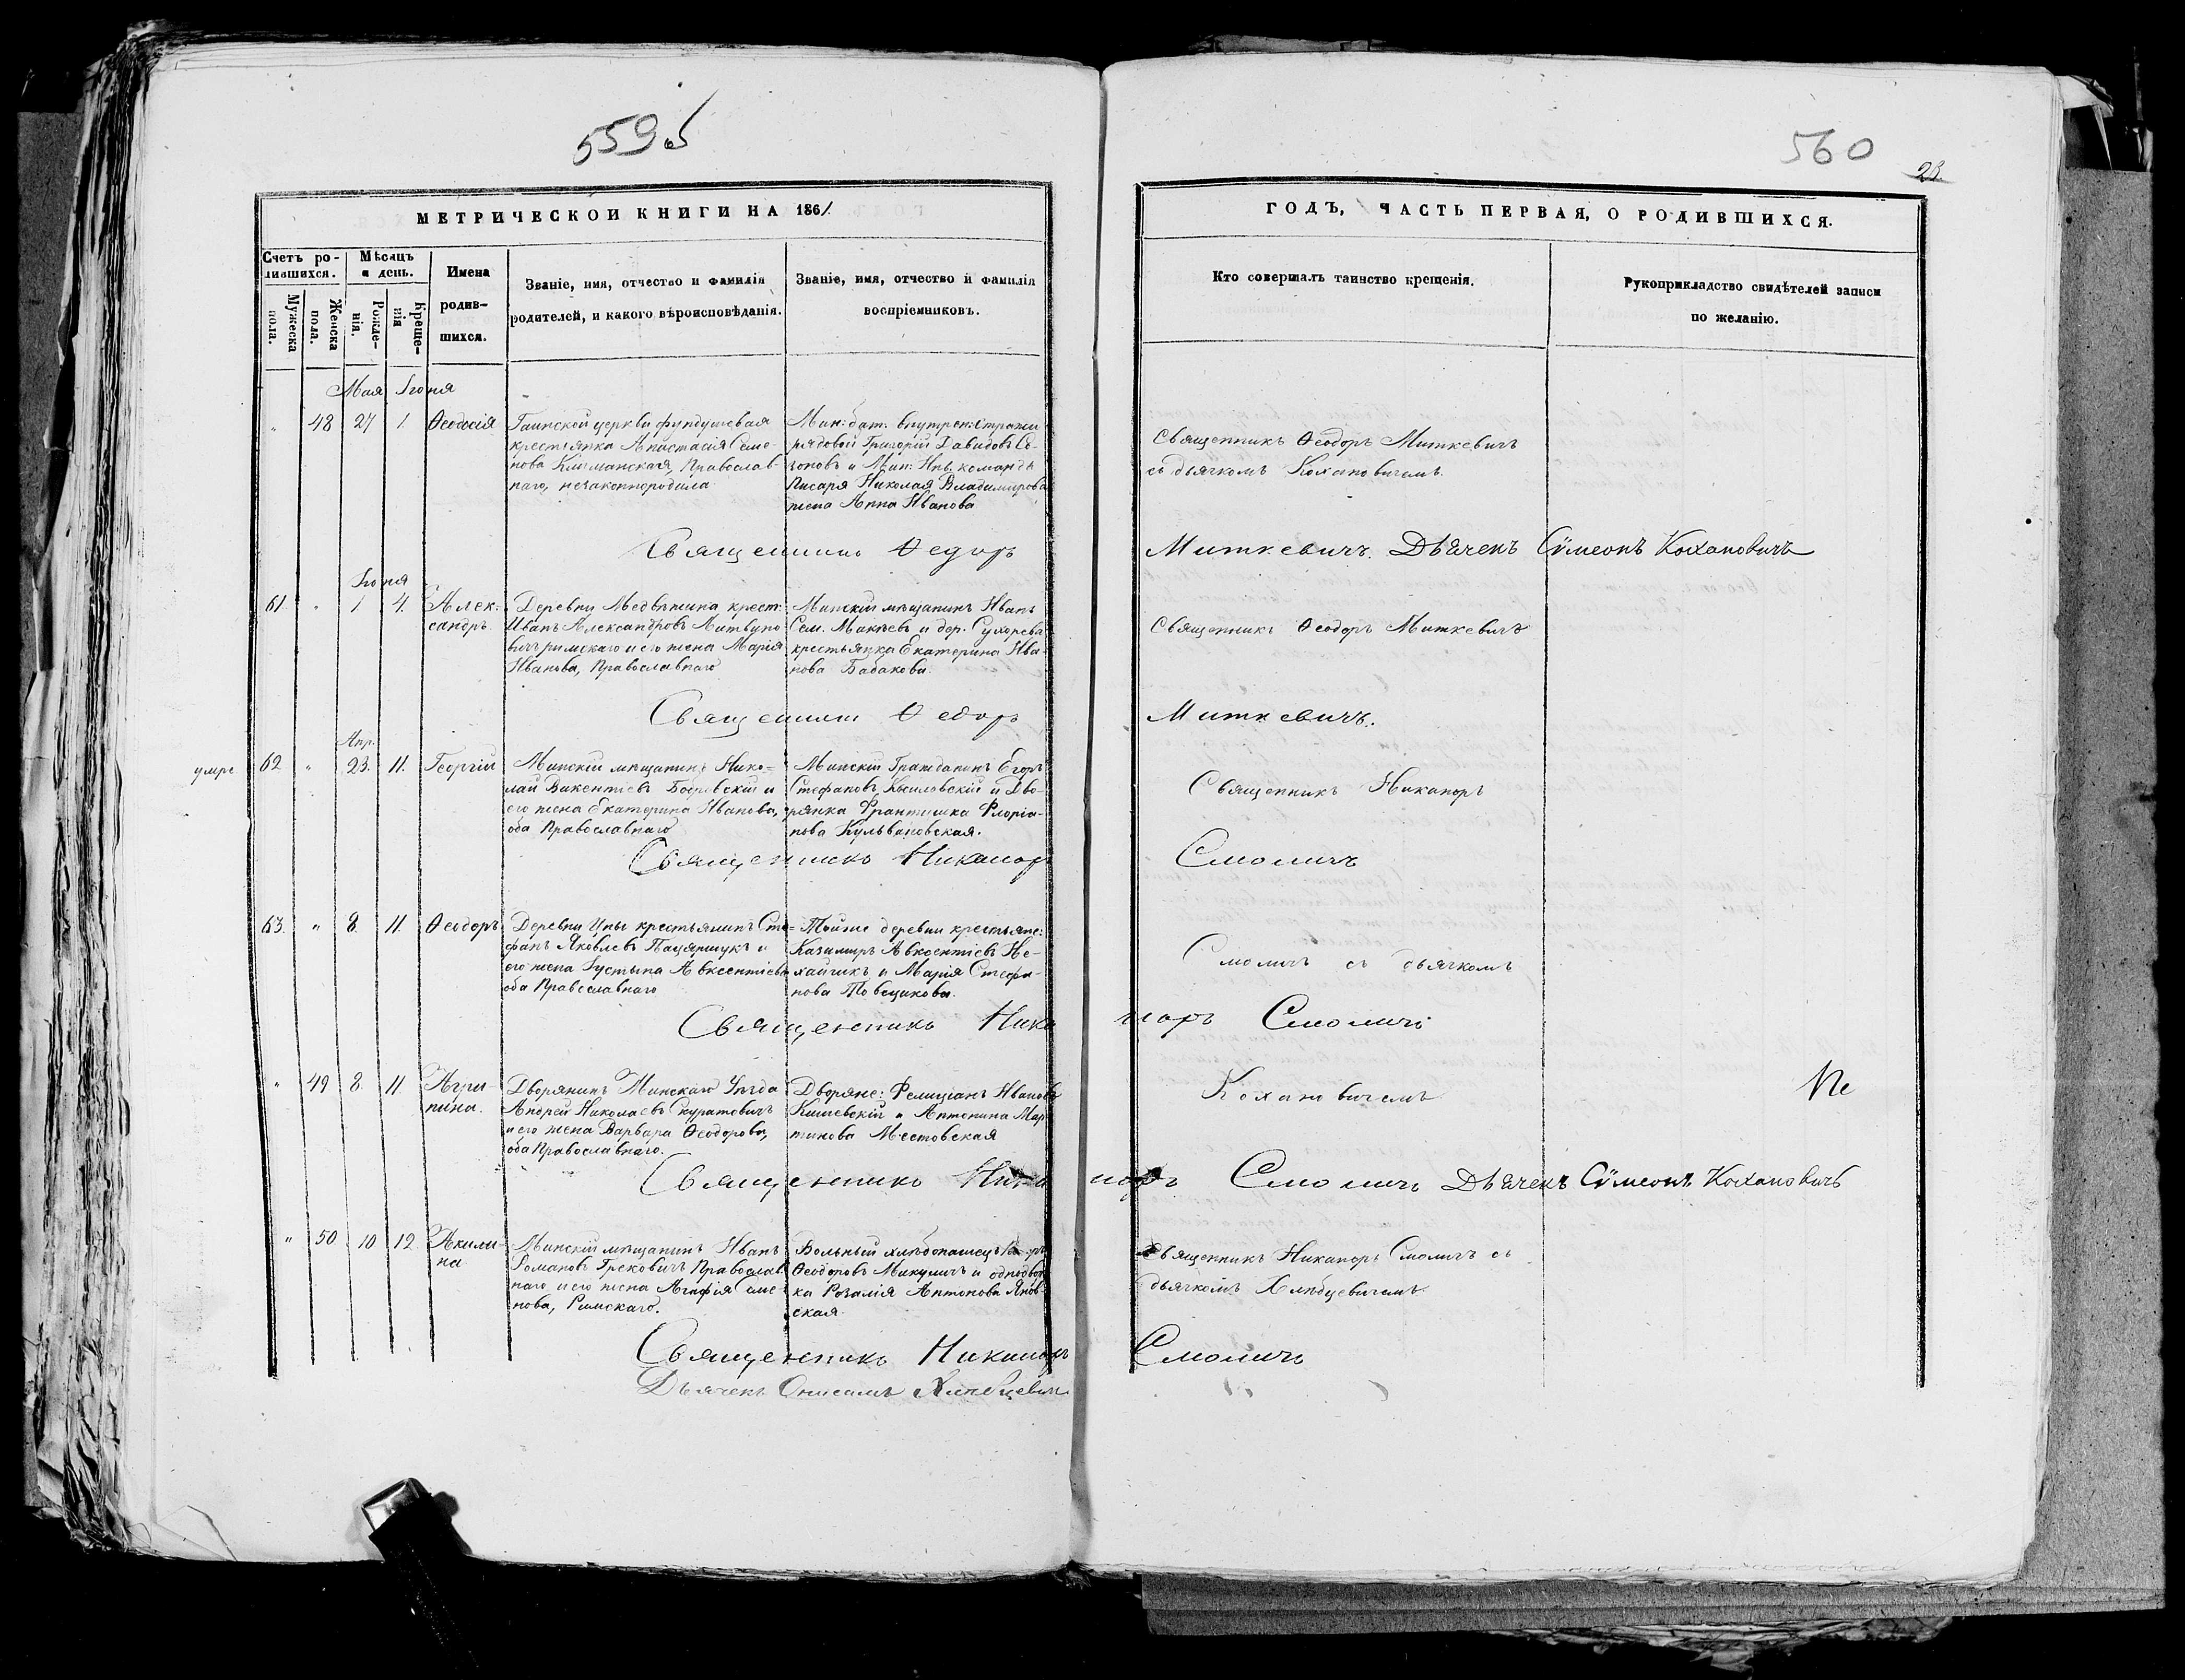 559 об
560
28.
МЕТРИЧЕСКОЙ КНИГИ НА 1861.
ГОДЪ, ЧАСТЬ ПЕРВАЯ, О РОДИВШИХСЯ.
Счетъ ро-
дившихся.
Мѣсяцъ
и день.
Мужеска
пола.
Женска
пола.
Рожде-
нія.
Креще-
нія
Имена
родив-
шихся.
Званіе, имя, отчество и фамилія
родителей, и какого вѣроисповѣданія.
Званіе, имя, отчество и фамилія
воспріемниковъ.
Кто совершалъ таинство крещенія.
Рукоприкладство свидѣтелей записи
по желанію.
Мая Іюня
" 48 27 1. Ѳеодосія
церкви фундушевая
крестьянка Анастасія Семе-
нова Климанская, Православ-
наго, незаконнородила
Мин: бат. внутрен: Стражи
рядовой Григорій Давидовъ
и Мин: Инв. команды
Писаря Николая Владимірова
жена Анна Иванова
Священникъ Ѳеодоръ Миткевичъ
съ дьячкомъ Кохановичемъ.
Священникъ Ѳедоръ Миткевичъ. Дьячекъ Сѵмеонъ Кохановичъ
Іюня
61. " 1 4. Алек-
сандръ.
Деревни Медвѣжина крест:
Иванъ Александровъ Литвино-
вичъ римскаго и его жена Марія
Иванова, Православнаго
Минскій мѣщанинъ Иванъ
Сем. Макѣевъ и дер. Сухорева
крестьянка Екатерина Ива-
нова Бабакова.
Священникъ Ѳеодоръ Миткевичъ
Священникъ Ѳедоръ Миткевичъ.
умре
Апр.
62 " 23. 11. Георгій
Минскій мѣщанинъ Нико-
лай Викентіевъ и
его жена Екатерина Иванова,
оба Православнаго
Минскій Гражданинъ Егоръ
Стефановъ и Дво-
рянка Франтишка Флоріа-
нова Кульвановская.
Священникъ Никаноръ
Священникъ Никаноръ Смоличъ
63. " 8. 11. Ѳеодоръ
Деревни Цны крестьянинъ Сте-
фанъ Яковлевъ Пацяршукъ и
его жена Іустына Авксентіева
оба Православнаго
Тойже деревни крестьяне:
Казимиръ Авксентіевъ Не-
хайчикъ и Марія Стефа-
нова Товсцикова.
Смоличъ съ дьячкомъ
Священникъ Никаноръ Смоличъ
" 49 8. 11. Агри-
пина.
Дворянинъ Минскаго Уѣзда
Андрей Николаевъ Скуратовичъ
и его жена Варвара Ѳеодорова,
оба Православнаго.
Дворяне: Фелиціанъ Ивановъ
Кишевскій и Антонина Мар-
тинова Местовская
Кохановичемъ
Не
Священникъ Никаноръ Смоличъ Дьячекъ Сѵмеонъ Кохановичъ
" 50 10 12 Акили-
на
Минскій мѣщанинъ Иванъ
Романовъ Грековичъ Православ-
наго и его жена Агафія Симе-
нова, Римскаго.
Вольный хлѣбопашецъ
Ѳеодоровъ Микуличъ и однодвор-
ка Розалія Антонова Янов-
ская.
Священникъ Никаноръ Смоличъ съ
дьячкомъ Хлѣбцевичемъ.
Священникъ Никаноръ Смоличъ
Дьячекъ Онисимъ Хлѣбцевичъ